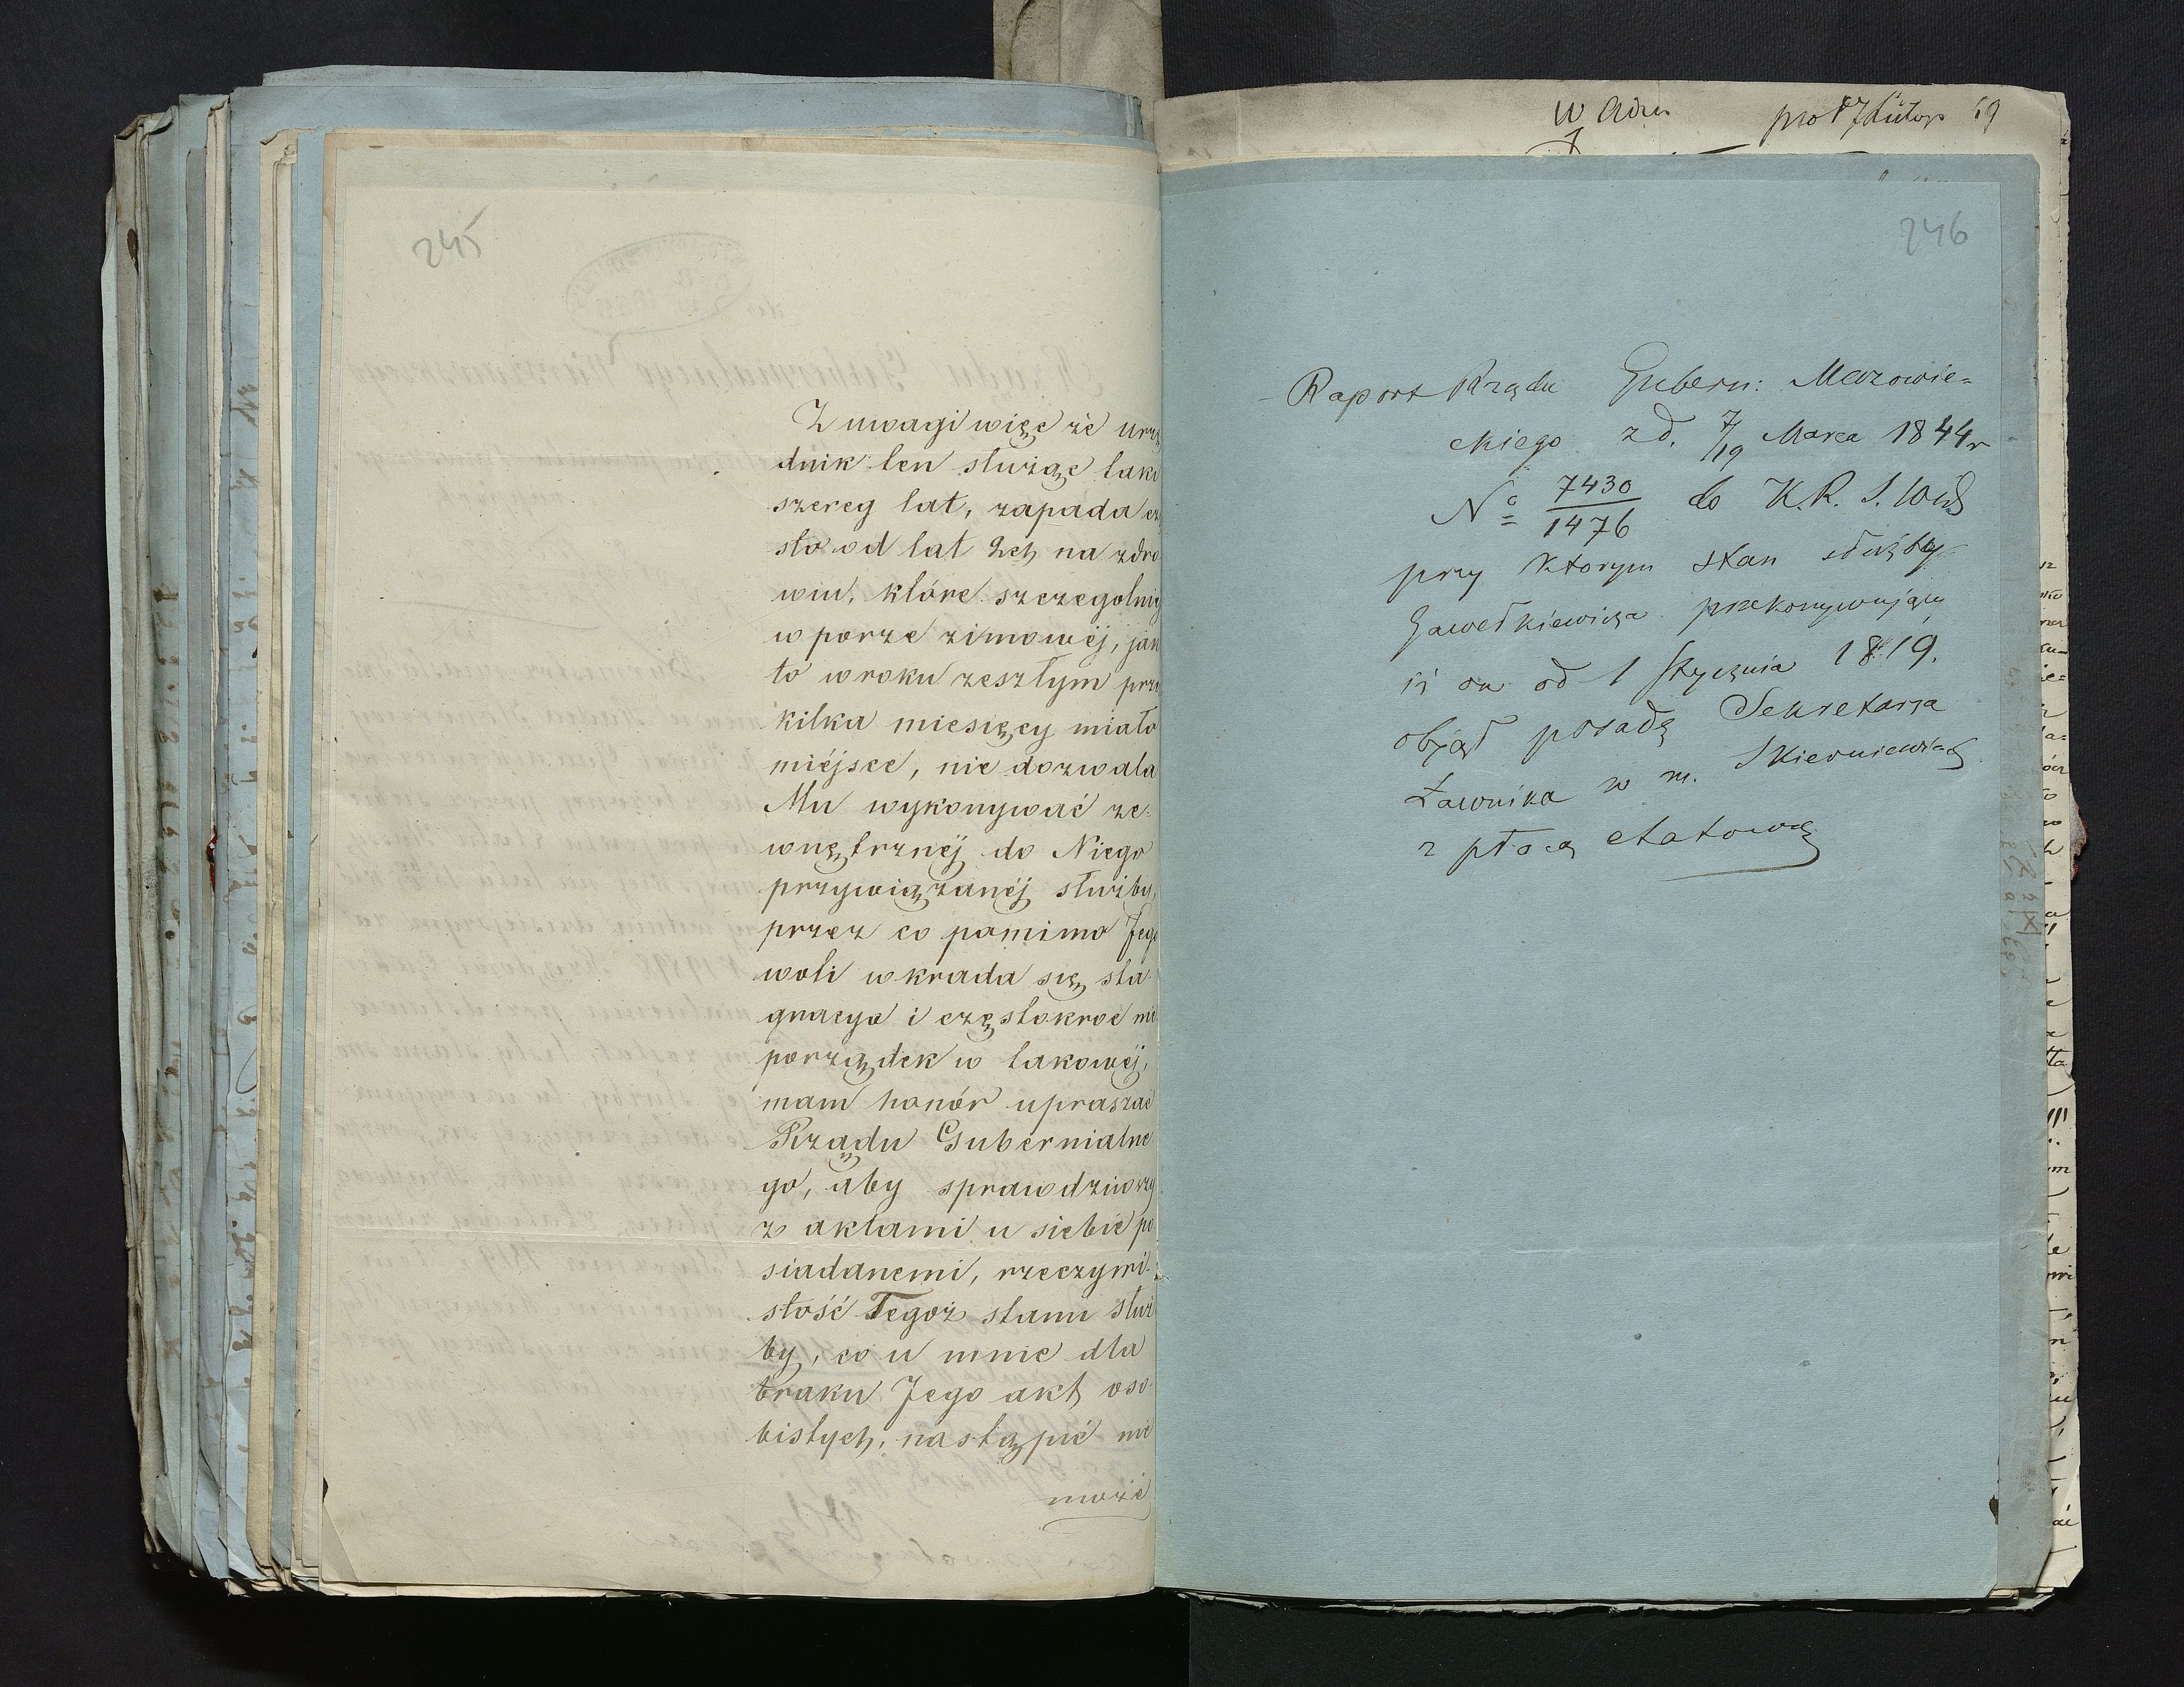 245
Z uwagi więc że urzę
dnik ten służąc taki
szereg lat, zapada czę
sto od lat 2ch na zdro
wiu, które szczegolniej
w porze zimowéj, jak
to w roku zeszłym prze
kilka miesięcy miało
miéjsce, nie dozwala
Mu wykonywać ze=
wnętrznéj do Niego
przywiązanéj służby,
przez co pomimo Jego
woli wkrada się sta-
gnacya i częstokroć nie
porządek w takowéj,
mam honór upraszać
Rządu Gubernialne
go, aby sprawdziwszy
z aktami u siebie po
siadanemi, rzeczywi-
stość Tegoż stanu służ
by, co u mnie dla
braku Jego akt oso-
bistych, nastąpić nie
może
246
Raport Rządu Gubern: Mazowie=
ckiego z d. 7/19 Marca 1844 r
No 7430/1476 do K. R. S. W
przy ktorym stan służby
Gawełkiewicza przekonywujący
iż on od 1 Stycznia 1819.
objął posadę Sekretarza
Ławnika w m. Skierniewicach
z płacą etatową